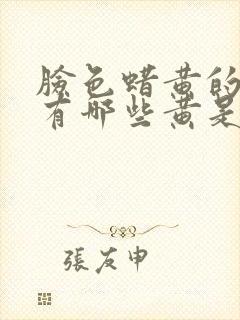 臉色蜡黄的
有哪些黄是
張友申